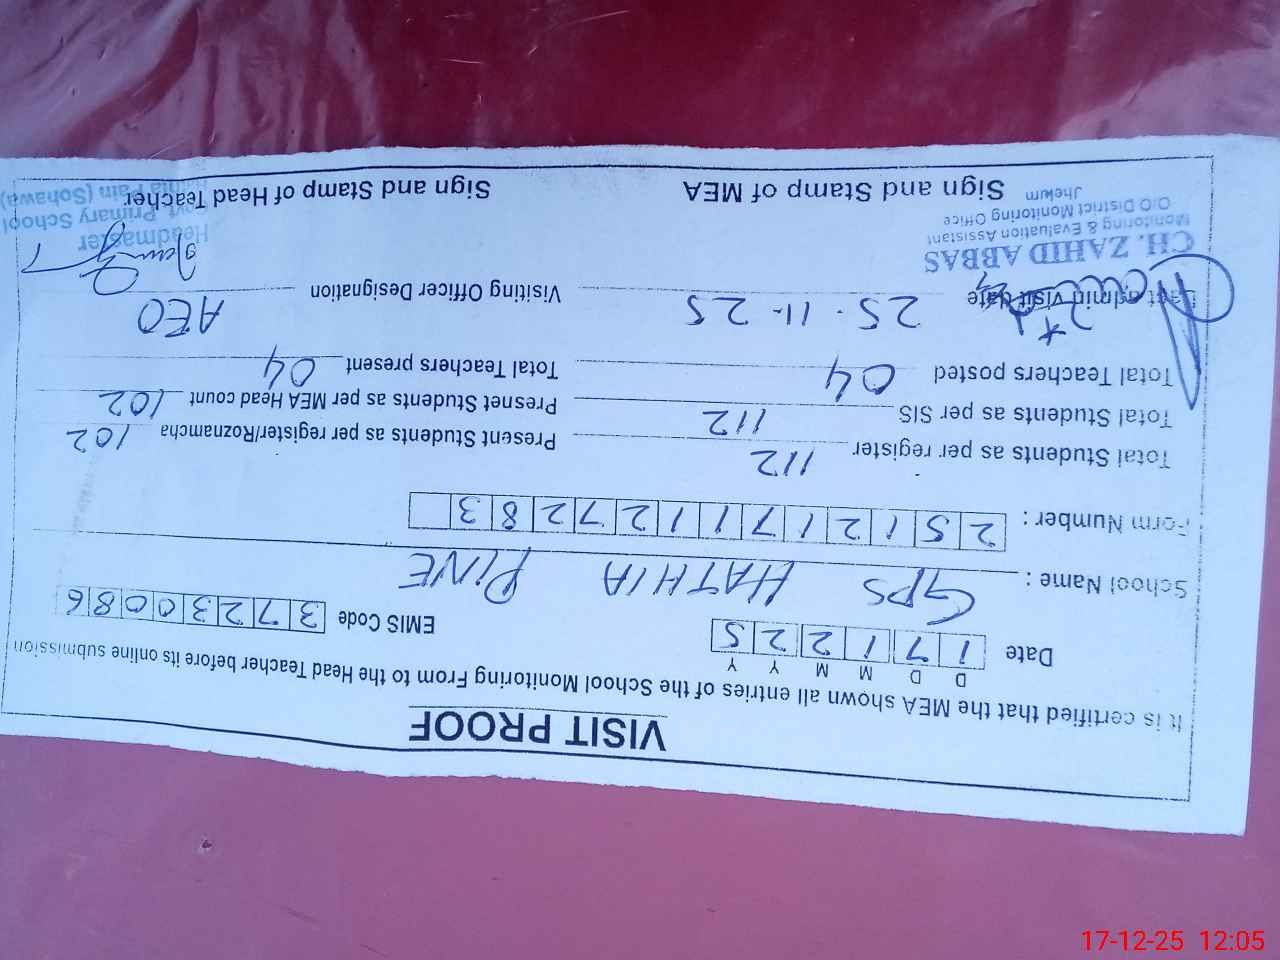 VISIT PROOF
It is certified that the MEA shown all entries of the School Monitoring From to the Head Teacher before its online submission
D D M M Y Y
Date 1 7 1 2 2 5 EMIS Code 3 7 2 3 0 0 8 6
School Name : GPS HATHIA PINE
Form Number : 2 5 1 2 1 7 1 1 2 7 2 8 3
Total Students as per register 112 Present Students as per register/Roznamcha 102
Total Students as per SIS 112 Presnet Students as per MEA Head count 102
Total Teachers posted 04 Total Teachers present 04
Last admin visit date 25-11-25 Visiting Officer Designation AEO
CH. ZAHID ABBAS
Monitoring & Evaluation Assistant
O/O District Monitoring Office
Jhelum
Headmaster
Govt. Primary School
Hathia Pain (Sohawa)
Sign and Stamp of MEA Sign and Stamp of Head Teacher
17-12-25 12:05